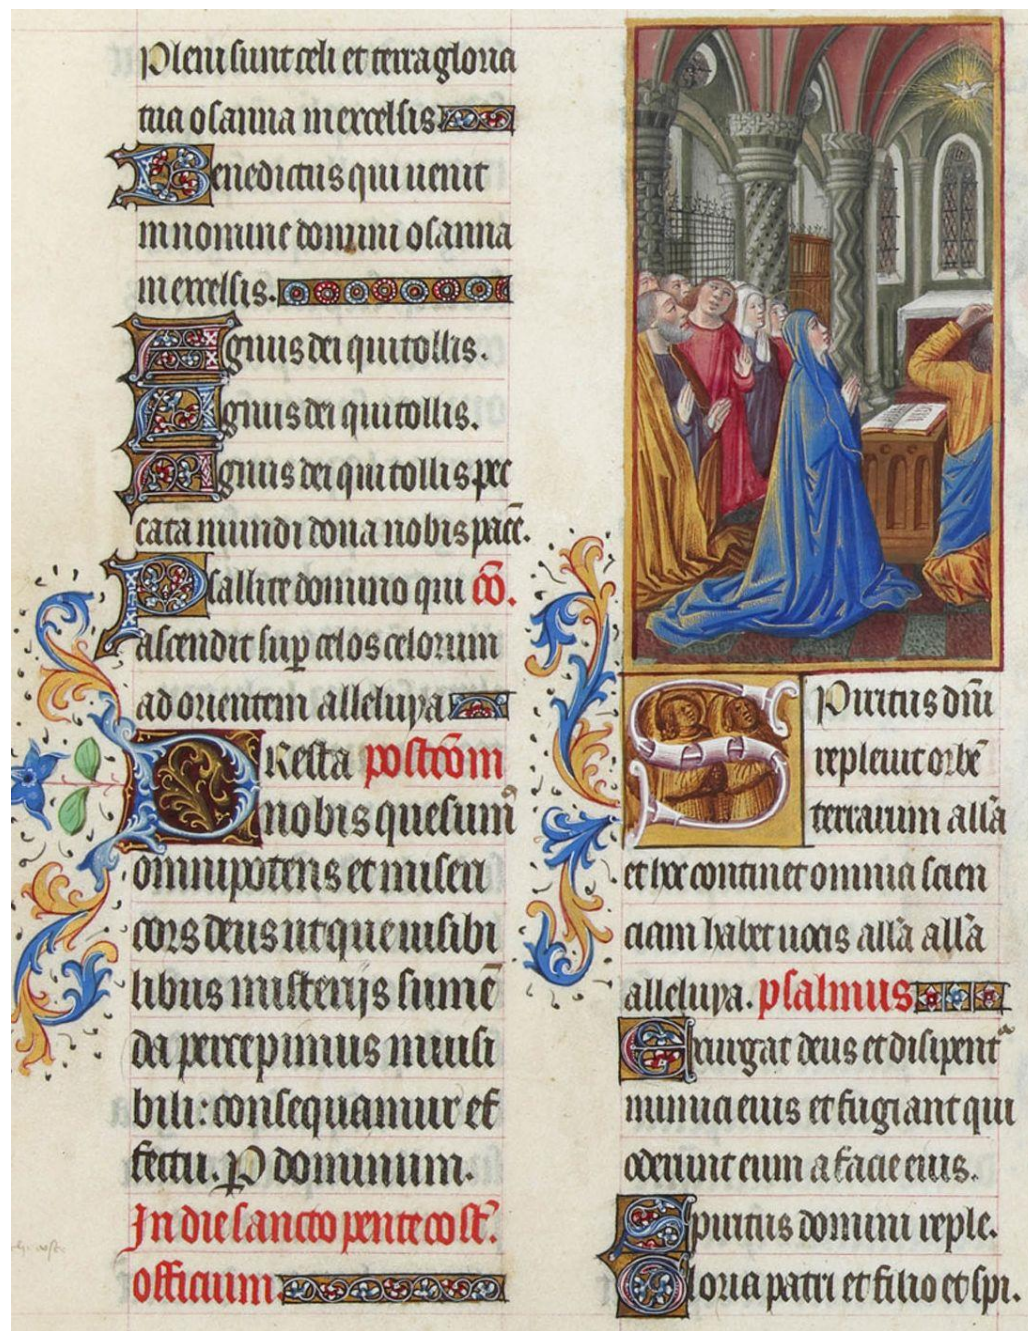 Pleni sunt celi et terra gloria
tua osanna in excelsis
Benedictus qui uenit
in nomine domini osanna
in excelsis.
Agnus dei qui tollis.
Agnus dei qui tollis.
Agnus dei qui tollis pec
cata mundi dona nobis pacē.
Psallite domino qui cō.
ascendit sup celos celorum
ad orientem alleluya
Presta postcōm
nobis quesum9
omnipotens et miseri
cors deus ut que uisibi
libus misterijs sumē
da percepimus inuisi
bili: consequamur ef
fectu. P dominum.
In die sancto pentecost.
officium
Spiritus dnī
repleuit orbē
terrarum allā
et hoc continet omnia scien
ciam habet uocis allā allā
alleluya. psalmus
Exurgat deus et disipent
inimici eius et fugiant qui
oderunt eum a facie eius.
Spiritus domini reple.
Gloria patri et filio et spi.